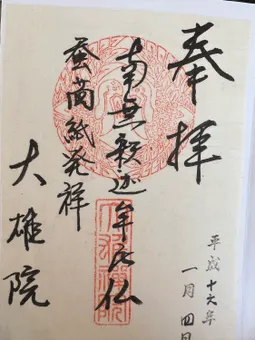 奉拝
平成十六年
一月四日
南無釈迦牟尼仏
紙発祥
大雄院